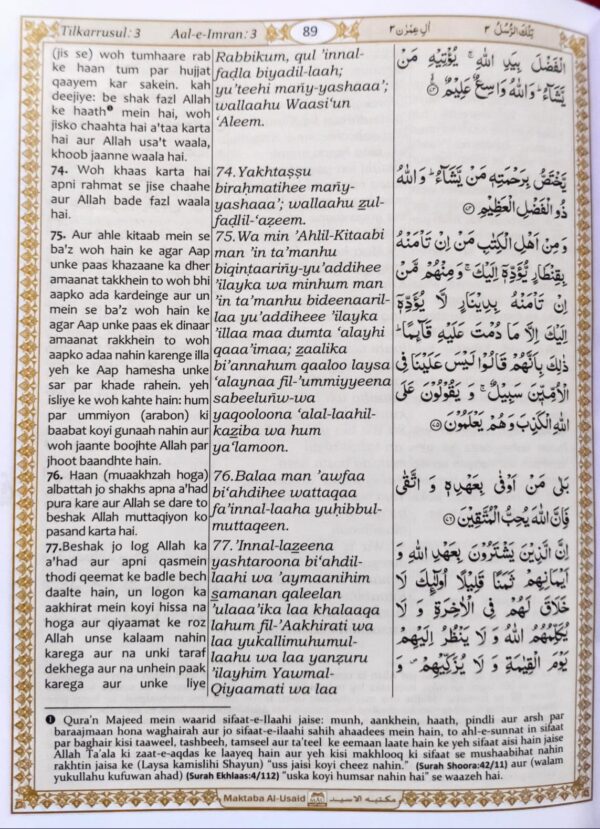 Tilkarrusul: 3
Aal-e-Imran: 3
89
اٰلِ عِمْرٰن ٣
تِلْكَ الرُّسُلُ ٣
(jis se) woh tumhaare rab
ke haan tum par hujjat
qaayem kar sakein. kah
deejiye: be shak fazl Allah
ke haath❶ mein hai, woh
jisko chaahta hai a'taa karta
hai aur Allah usa't waala,
khoob jaanne waala hai.
74. Woh khaas karta hai
apni rahmat se jise chaahe
aur Allah bade fazl waala
hai.
75. Aur ahle kitaab mein se
ba'z woh hain ke agar Aap
unke paas khazaane ka dher
amaanat takkhein to woh bhi
aapko ada kardeinge aur un
mein se ba'z woh hain ke
agar Aap unke paas ek dinaar
amaanat rakkhein to woh
aapko adaa nahin karenge illa
yeh ke Aap hamesha unke
sar par khade rahein. yeh
isliye ke woh kahte hain: hum
par ummiyon (arabon) ki
baabat koyi gunaah nahin aur
woh jaante boojhte Allah par
jhoot baandhte hain.
76. Haan (muaakhzah hoga)
albattah jo shakhs apna a'had
pura kare aur Allah se dare to
beshak Allah muttaqiyon ko
pasand karta hai.
77.Beshak jo log Allah ka
a'had aur apni qasmein
thodi qeemat ke badle bech
daalte hain, un logon ka
aakhirat mein koyi hissa na
hoga aur qiyaamat ke roz
Allah unse kalaam nahin
karega aur na unki taraf
dekhega aur na unhein paak
karega aur unke liye
Rabbikum, qul 'innal-
faḍla biyadil-laah;
yu'teehi mañy-yashaaa';
wallaahu Waasi'un
'Aleem.
74.Yakhtaṣṣu
biraḥmatihee mañy-
yashaaa'; wallaahu z̲ul-
faḍlil-'aẓeem.
75.Wa min 'Ahlil-Kitaabi
man 'in ta'manhu
biqinṭaariñy-yu'addihee
'ilayka wa minhum man
'in ta'manhu bideenaaril-
laa yu'addiheee 'ilayka
'illaa maa dumta 'alayhi
qaaa'imaa; z̲aalika
bi'annahum qaaloo laysa
'alaynaa fil-'ummiyyeena
sabeeluñw-wa
yaqooloona 'alal-laahil-
kaz̲iba wa hum
ya'lamoon.
76.Balaa man 'awfaa
bi'ahdihee wattaqaa
fa'innal-laaha yuḥibbul-
muttaqeen.
77.'Innal-laz̲eena
yashtaroona bi'ahdil-
laahi wa 'aymaanihim
s̲amanan qaleelan
'ulaaa'ika laa khalaaqa
lahum fil-'Aakhirati wa
laa yukallimuhumul-
laahu wa laa yanẓuru
'ilayhim Yawmal-
Qiyaamati wa laa
الْفَضْلَ بِيَدِ اللهِ ۚ يُؤْتِيْهِ مَنْ
يَّشَآءُ ؕ وَاللهُ وَاسِعٌ عَلِيْمٌ ۙ۝
يَّخْتَصُّ بِرَحْمَتِهٖ مَنْ يَّشَآءُ ؕ وَاللهُ
ذُو الْفَضْلِ الْعَظِيْمِ ۝
وَمِنْ اَهْلِ الْكِتٰبِ مَنْ اِنْ تَاْمَنْهُ
بِقِنْطَارٍ يُّؤَدِّهٖۤ اِلَيْكَ ۚ وَمِنْهُمْ مَّنْ
اِنْ تَاْمَنْهُ بِدِيْنَارٍ لَّا يُؤَدِّهٖۤ
اِلَيْكَ اِلَّا مَا دُمْتَ عَلَيْهِ قَآئِمًا ؕ
ذٰلِكَ بِاَنَّهُمْ قَالُوْا لَيْسَ عَلَيْنَا فِى
الْاُمِّيّٖنَ سَبِيْلٌ ۚ وَ يَقُوْلُوْنَ عَلَى
اللهِ الْكَذِبَ وَهُمْ يَعْلَمُوْنَ ۝
بَلٰى مَنْ اَوْفٰى بِعَهْدِهٖ وَ اتَّقٰى
فَاِنَّ اللهَ يُحِبُّ الْمُتَّقِيْنَ ۝
اِنَّ الَّذِيْنَ يَشْتَرُوْنَ بِعَهْدِ اللهِ وَ
اَيْمَانِهِمْ ثَمَنًا قَلِيْلًا اُولٰٓئِكَ لَا
خَلَاقَ لَهُمْ فِى الْاٰخِرَةِ وَ لَا
يُكَلِّمُهُمُ اللهُ وَ لَا يَنْظُرُ اِلَيْهِمْ
يَوْمَ الْقِيٰمَةِ وَ لَا يُزَكِّيْهِمْ ۪ وَ
❶ Qura'n Majeed mein waarid sifaat-e-Ilaahi jaise: munh, aankhein, haath, pindli aur arsh par
baraajmaan hona waghairah aur jo sifaat-e-ilaahi sahih ahaadees mein hain, to ahl-e-sunnat in sifaat
par baghair kisi taaweel, tashbeeh, tamseel aur ta'teel ke eemaan laate hain ke yeh sifaat aisi hain jaise
Allah Ta'ala ki zaat-e-aqdas ke laayeq hain aur yeh kisi makhlooq ki sifaat se mushaabihat nahin
rakhtin jaisa ke (Laysa kamislihi Shayun) "uss jaisi koyi cheez nahin." (Surah Shoora:42/11) aur (walam
yukullahu kufuwan ahad) (Surah Ekhlaas:4/112) "uska koyi humsar nahin hai" se waazeh hai.
Maktaba Al-Usaid
مكتبه الاسيد